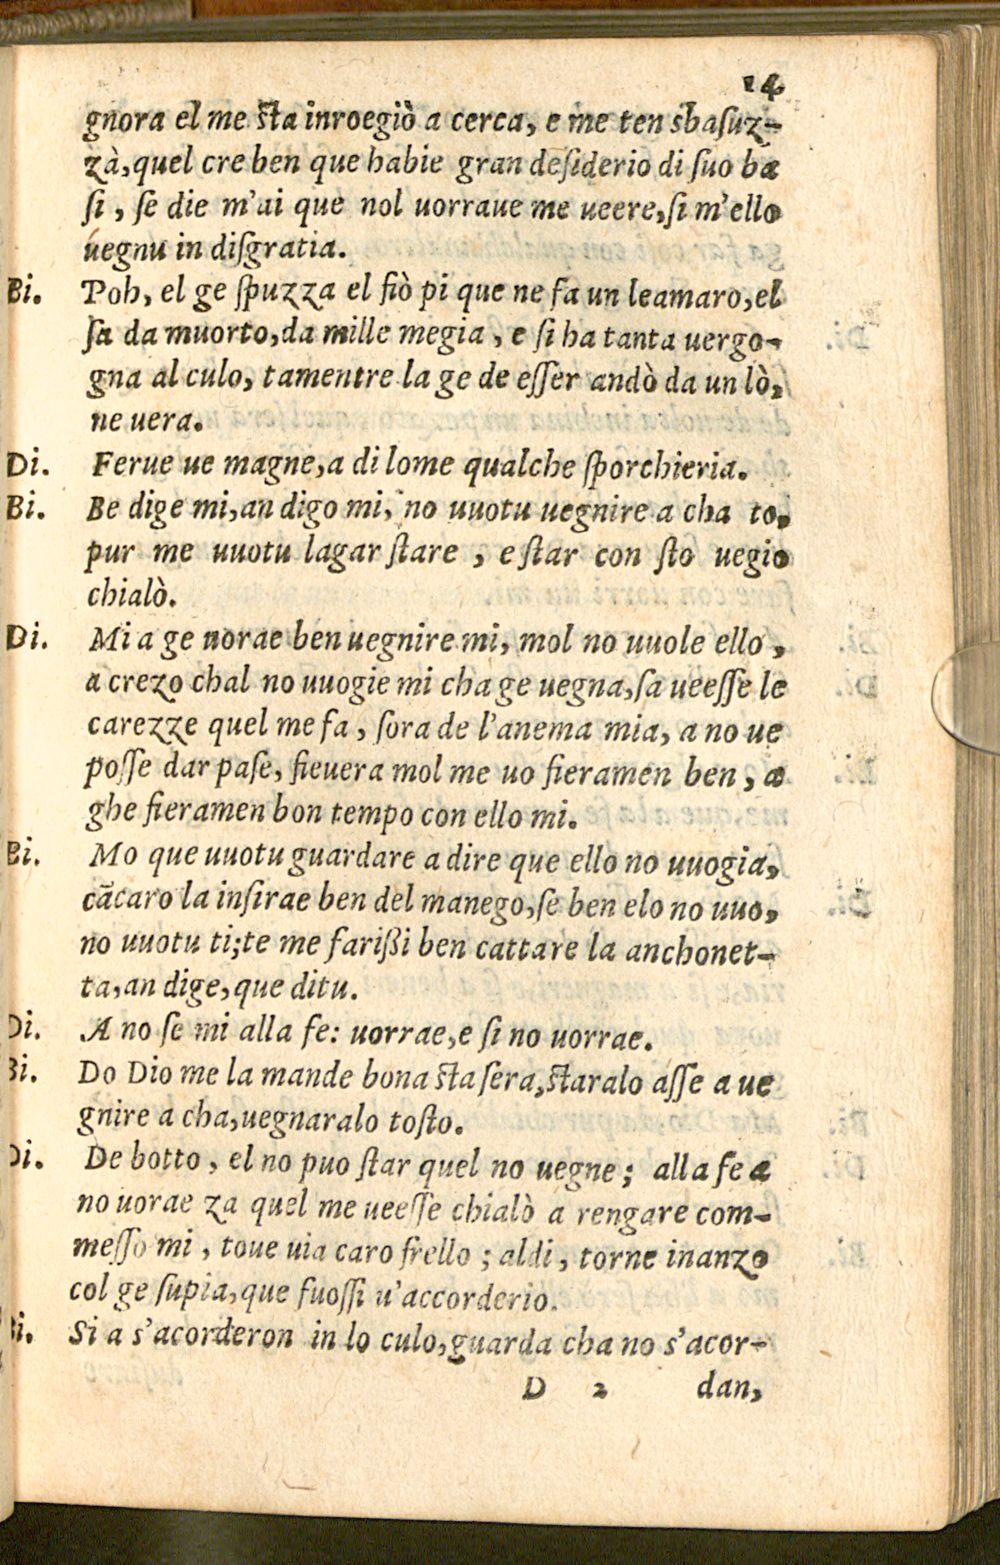 14
gnora el me sta inroegiò a cerca, e me ten sbasuz-
zà,quel cre ben que habie gran desiderio di suo ba
si, se die m'ai que nol uorraue me ueere,si m'ello
uegnu in disgratia.
Bi. Poh, el ge spuzza el fiò pi que ne fa un leamaro,el
sa da muorto,da mille megia, e si ha tanta uergo-
gna al culo, tamentre la ge de esser andò da un lò,
ne uera.
Di. Ferue ue magne,a di lome qualche sporchieria.
Bi. Be dige mi,an digo mi, no uuotu uegnire a cha to,
pur me uuotu lagar stare, e star con sto uegio
chialò.
Di. Mi a ge norae ben uegnire mi, mol no uuole ello,
a crezo chal no uuogie mi cha ge uegna,sa ueesse le
carezze quel me fa, sora de l'anema mia, a no ue
posse dar pase, fieuera mol me uo fieramen ben, a
ghe fieramen bon tempo con ello mi.
Bi. Mo que uuotu guardare a dire que ello no uuogia,
cācaro la insirae ben del manego,se ben elo no uuo,
no uuotu ti;te me farißi ben cattare la anchonet-
ta,an dige,que ditu.
Di. A no se mi alla fe: uorrae,e si no uorrae.
Bi. Do Dio me la mande bona sta sera,staralo asse a ue
gnire a cha,uegnaralo tosto.
Di. De botto, el no puo star quel no uegne; alla fe a
no uorae za quel me ueesse chialò a rengare com-
messo mi, toue uia caro frello; aldi, torne inanzo
col ge supia,que fuossi u'accorderio.
Bi. Si a s'acorderon in lo culo,guarda cha no s'acor-
D 2 dan,